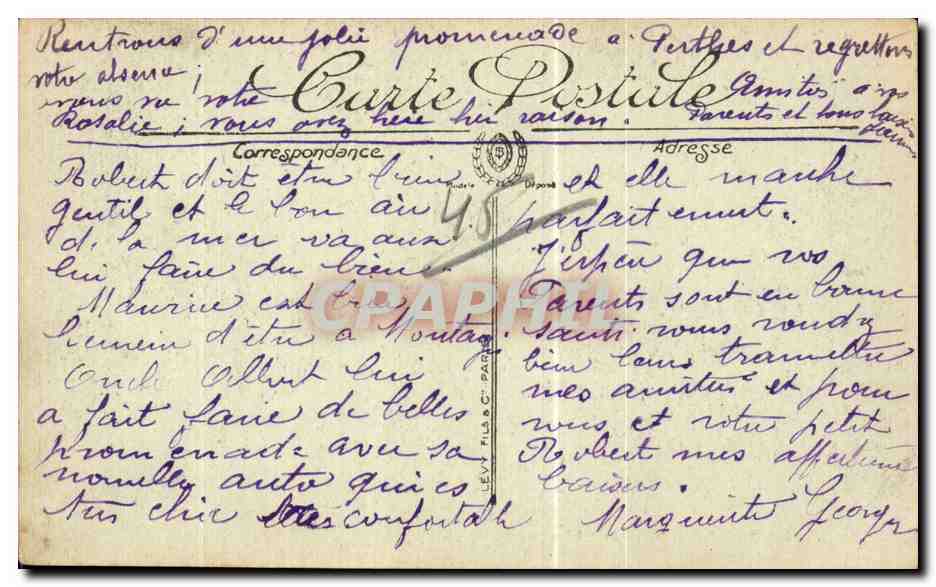 Rentrons d'une jolie promenade à Perthes et regrettons
votre absence ;
avons vu votre
Rosalie ; vous avez bien raison.
Amitiés à vos
Parents et tous
Carte Postale
Correspondance
Adresse
Modèle Déposé
45
Robert doit être bien
gentil et le bon air
de la mer va aussi
lui faire du bien
Maurice est très
heureux d'être à Montag.
Oncle Albert lui
a fait faire de belles
promenade avec sa
nouvelle auto qui es
très chic et très confortable
et elle marche
parfaitement.
J'espère que vos
Parents sont en bonne
santé vous voudrez
bien leurs transmettre
mes amitiés et pour
vous et votre petit
Robert mes affectueux
baisers.
Marguerite Georges
LÉVY FILS & Cie PARIS
CPAPHIL